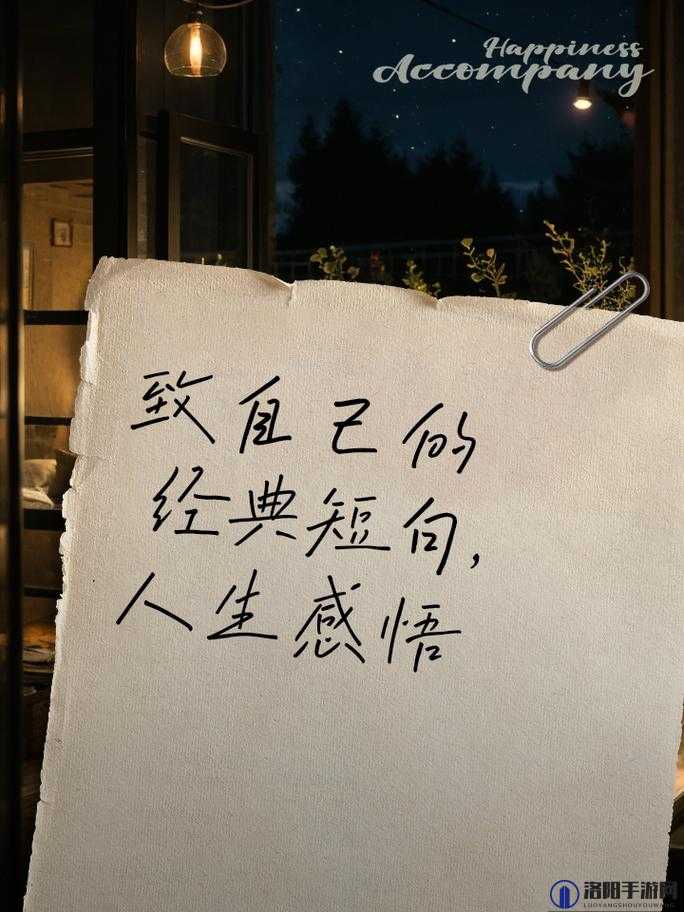 Happiness
Accompany
致自己的
经典短句,
人生感悟
洛阳手游网
LUOYANGSHOUYOUWANG